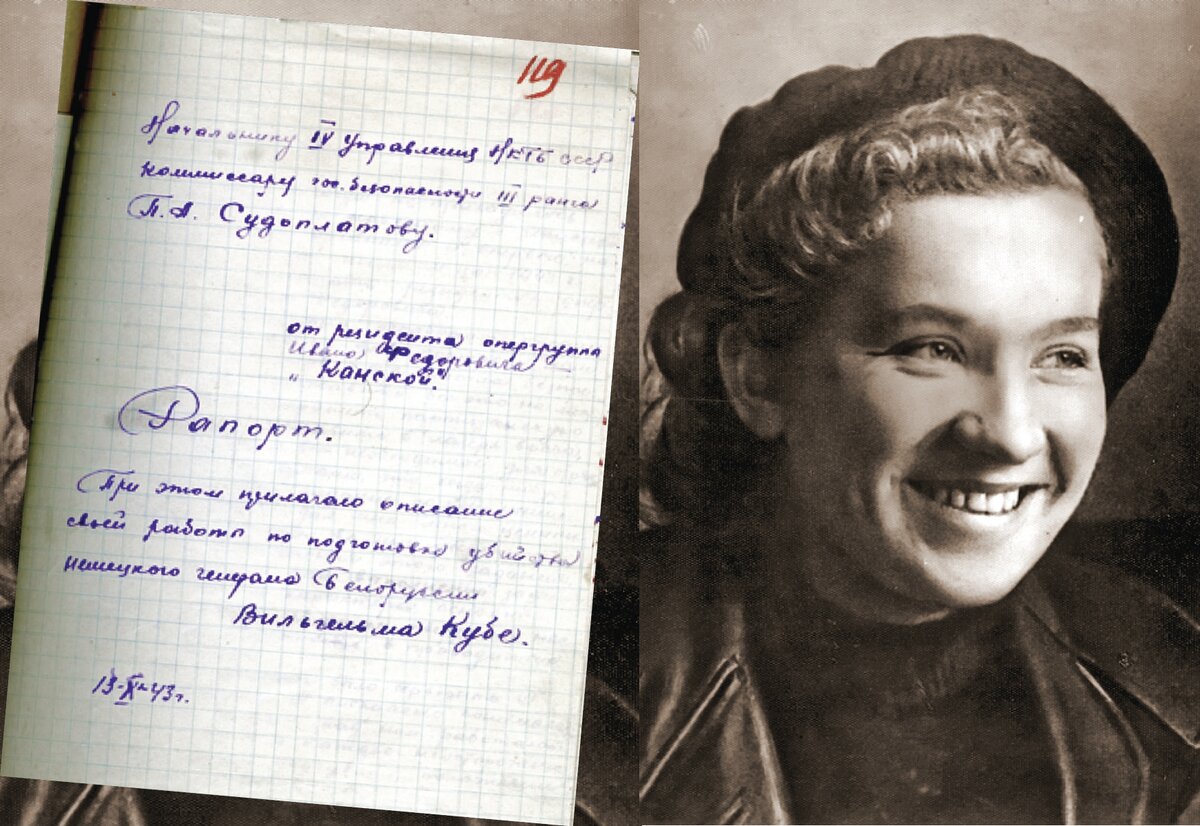 119
Начальнику IV Управления НКГБ СССР
комиссару гос. безопасности III ранга
П.А. Судоплатову.
от резидента опергруппы
Ивана Федоровича
"Канской."
Рапорт.
При этом прилагаю описание
своей работы по подготовке убийства
немецкого генерала Белоруссии
Вильгельма Кубе.
13-X-43г.